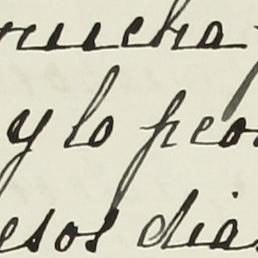 mucha
y lo peor
esos dias